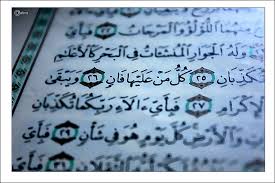 مِنْهُمَا اللُّؤْلُؤُ وَالْمَرْجَانُ ٢٢ فَبِأَيِّ
وَلَهُ الْجَوَارِ الْمُنشَآتُ فِي الْبَحْرِ كَالْأَعْلَامِ
تُكَذِّبَانِ ٢٥ كُلُّ مَنْ عَلَيْهَا فَانٍ ٢٦ وَيَبْقَىٰ
الْإِكْرَامِ ٢٧ فَبِأَيِّ ءَالَاءِ رَبِّكُمَا تُكَذِّبَانِ
وَالْأَرْضِ كُلَّ يَوْمٍ هُوَ فِي شَأْنٍ ٢٩ فَبِأَيِّ